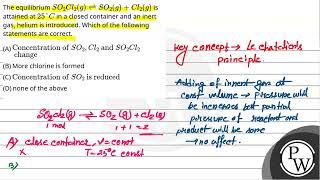 The equilibrium SO₂Cl₂(g) ⇌ SO₂(g) + Cl₂(g) is
attained at 25°C in a closed container and an inert
gas, helium is introduced. Which of the following
statements are correct.
(A) Concentration of SO₂, Cl₂ and SO₂Cl₂
change
(B) More chlorine is formed
(C) Concentration of SO₂ is reduced
(D) none of the above
Key concept → Le chatelier's
principle.
Adding of innert gas at
const volume → Pressure will
be increases but partial
pressure of reactant and
product will be same
→ no effect.
SO₂Cl₂(g) ⇌ SO₂(g) + Cl₂(g)
1 mol 1 + 1 = 2
A) close container, V = const
X T = 25°C const
B)
PW